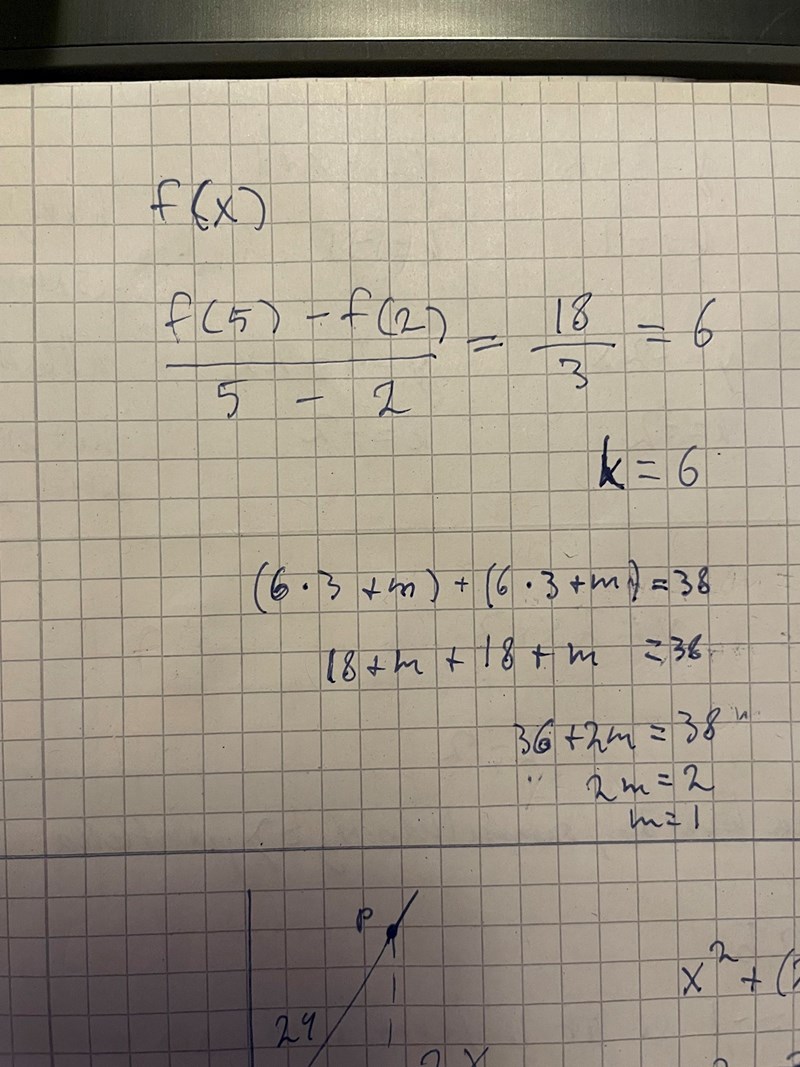 f(x)
f(5) - f(2) / 5 - 2 = 18 / 3 = 6
k = 6
(6 · 3 + m) + (6 · 3 + m) = 38
18 + m + 18 + m = 38
36 + 2m = 38
2m = 2
m = 1
P
x² + (
24
2x